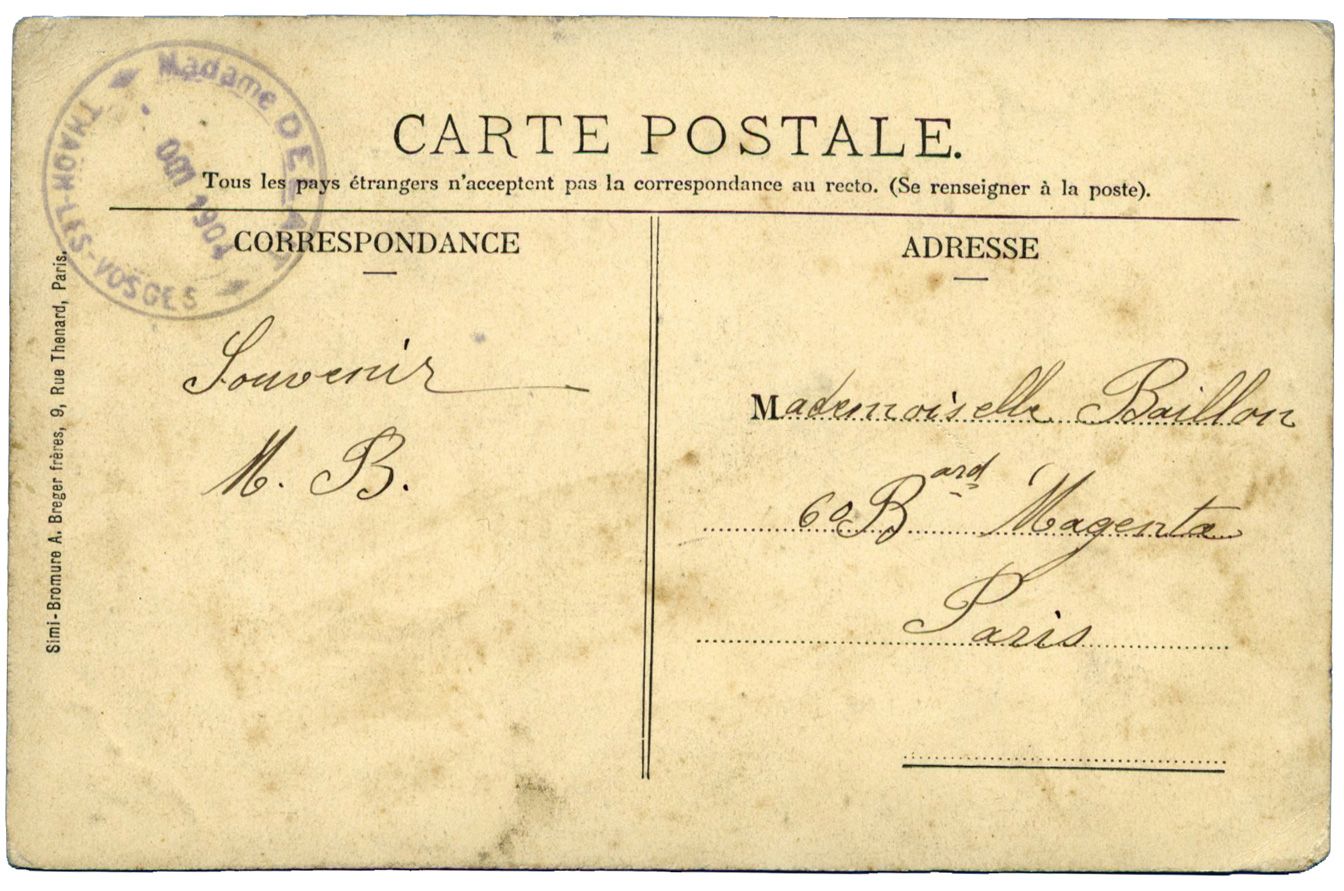 Madame DELAT
THAON-LES-VOSGES
1904
CARTE POSTALE.
Tous les pays étrangers n'acceptent pas la correspondance au recto. (Se renseigner à la poste).
CORRESPONDANCE
Souvenir
M. B.
ADRESSE
Mademoiselle Baillon
60 Bard Magenta
Paris
Simi-Bromure A. Breger frères, 9, Rue Thenard, Paris.